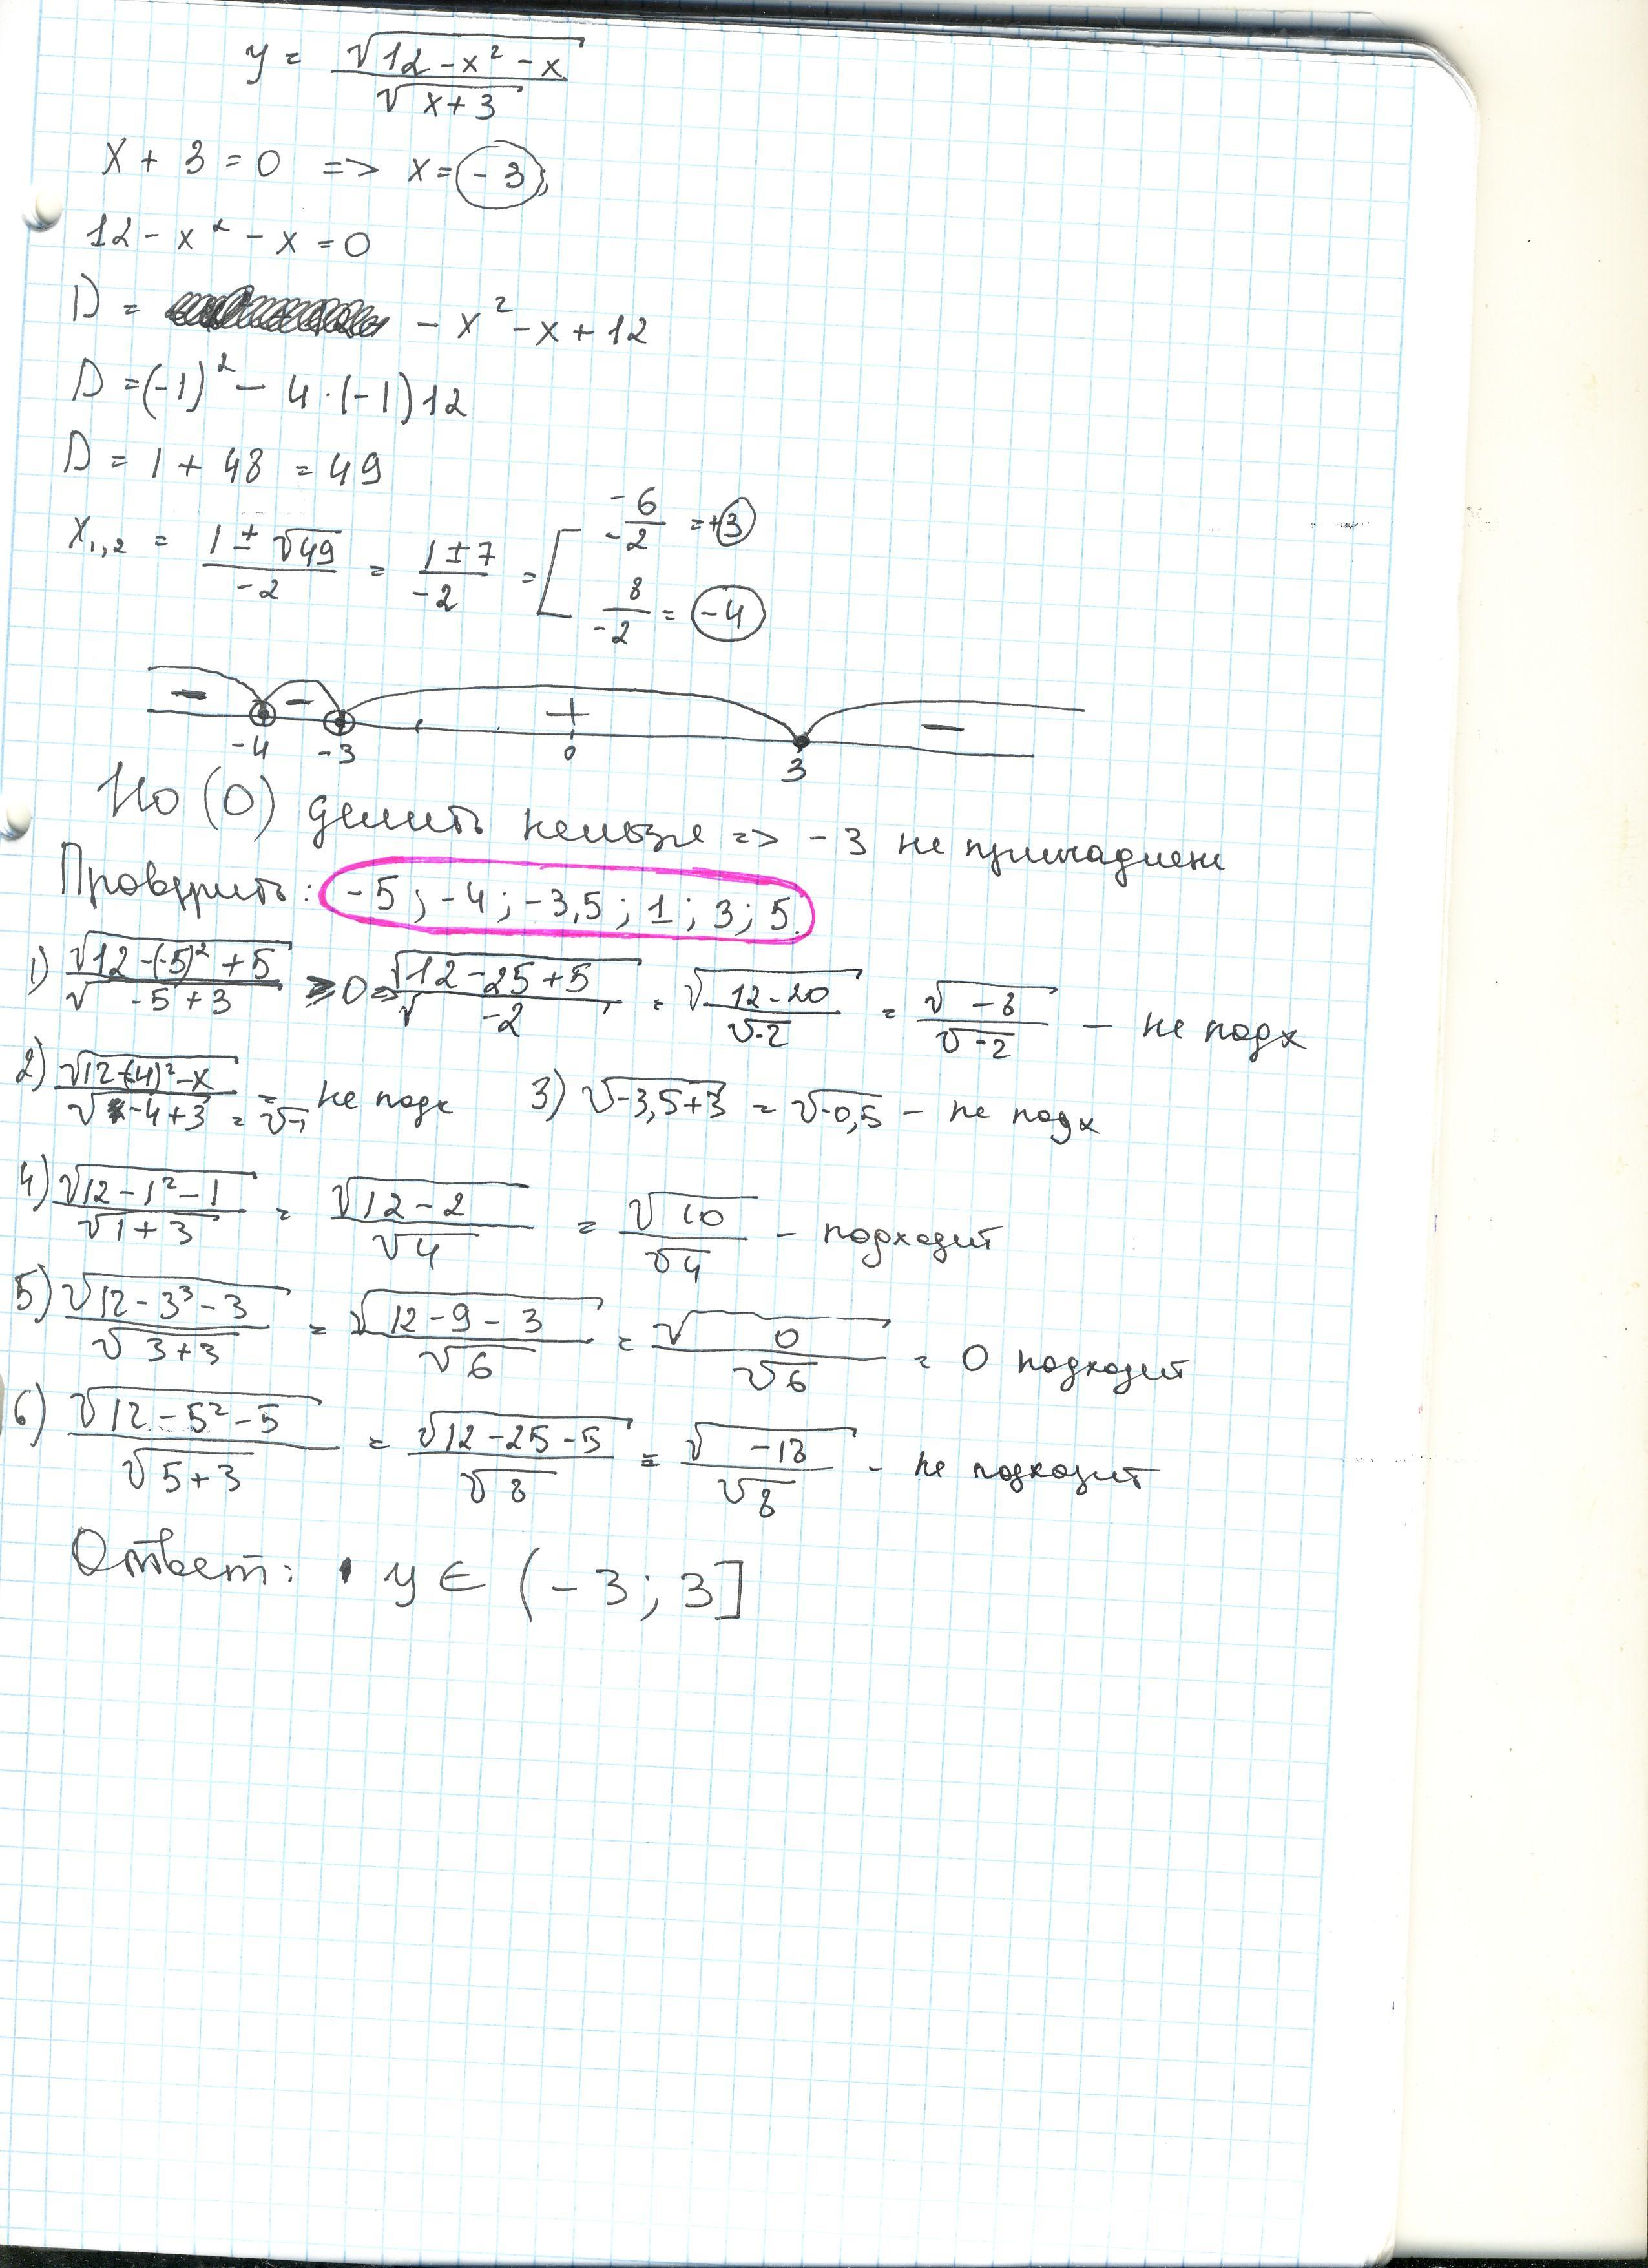 y = √(12 - x² - x) / √(x + 3)
x + 3 = 0 => x = -3;
12 - x² - x = 0
D = - x² - x + 12
D = (-1)² - 4 · (-1) 12
D = 1 + 48 = 49
x₁,₂ = (1 ± √49) / -2 = (1 ± 7) / -2 = [ -6 / -2 = +3
8 / -2 = -4
- - + -
-4 -3 0 3
На (0) делить нельзя => -3 не
Проверить: -5; -4; -3,5; 1; 3; 5.
1) √(12 - (-5)² + 5) / √(-5 + 3) ≥ 0 = √(12 - 25 + 5) / √(-2) = √(12 - 20) / √-2 = √-8 / √-2 - не подх
2) √(12 - (-4)² - x) / √(-4 + 3) = = √-1 не подх 3) √(-3,5 + 3) = √-0,5 - не подх
4) √(12 - 1² - 1) / √(1 + 3) = √(12 - 2) / √4 = √10 / √4 - подходит
5) √(12 - 3³ - 3) / √(3 + 3) = √(12 - 9 - 3) / √6 = √0 / √6 = 0 подходит
6) √(12 - 5² - 5) / √(5 + 3) = √(12 - 25 - 5) / √8 = √-18 / √8 - не подходит
Ответ: y ∈ (-3; 3]